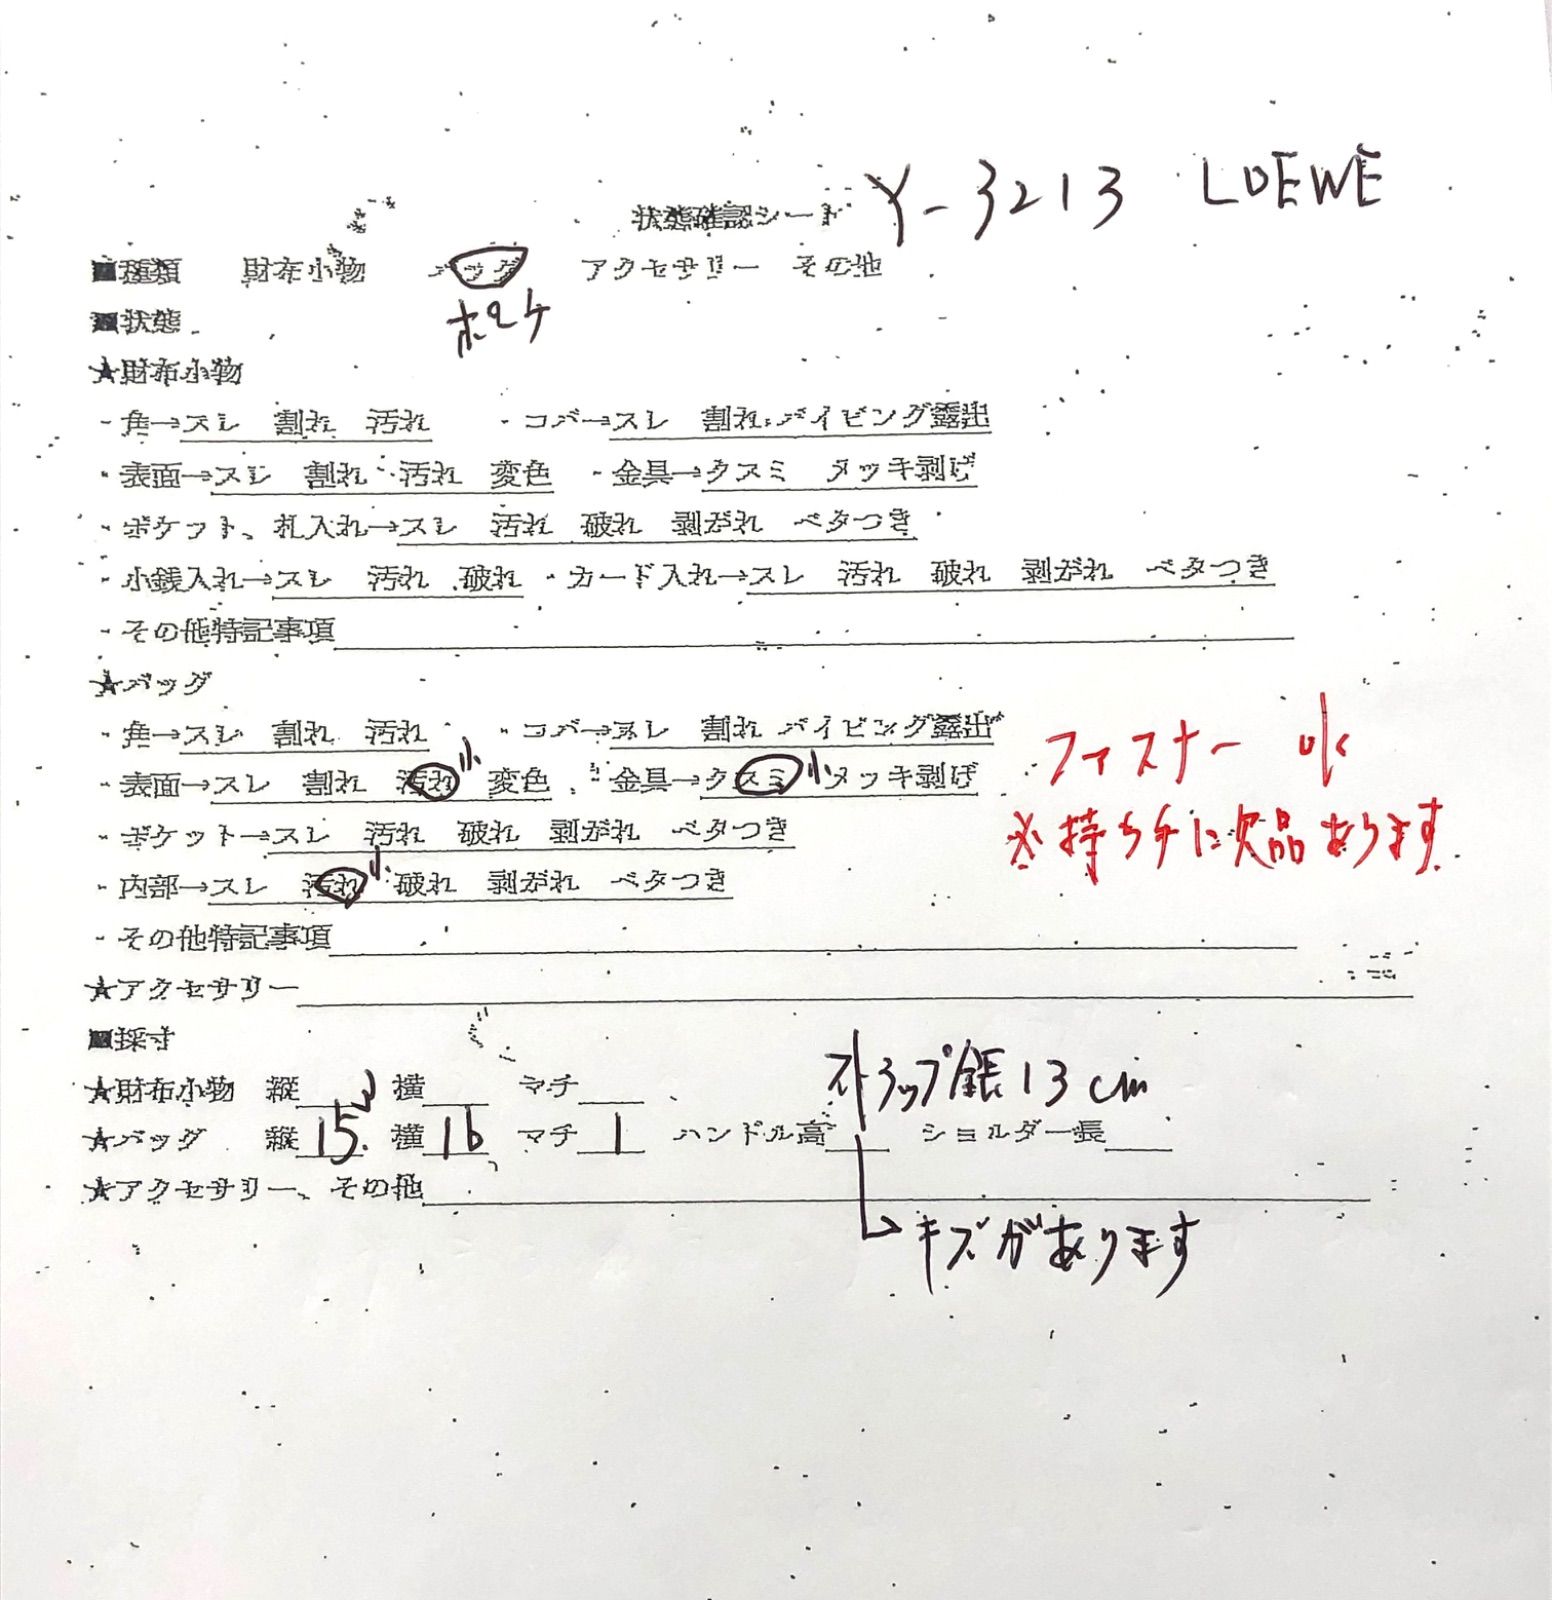 状態確認シート Y-3213 LOEWE
■種類 財布小物 バッグ アクセサリー その他
■状態 ポーチ
★財布小物
・角→スレ 割れ 汚れ ・コバ→スレ 割れ パイピング露出
・表面→スレ 割れ 汚れ 変色 ・金具→クスミ メッキ剥げ
・ポケット、札入れ→スレ 汚れ 破れ 剥がれ ベタつき
・小銭入れ→スレ 汚れ 破れ ・カード入れ→スレ 汚れ 破れ 剥がれ ベタつき
・その他特記事項
★バッグ
・角→スレ 割れ 汚れ ・コバ→スレ 割れ パイピング露出
ファスナー ok
・表面→スレ 割れ 汚れ 小 変色 ・金具→クスミ 小 メッキ剥げ
※持ち手に欠品あります
・ポケット→スレ 汚れ 破れ 剥がれ ベタつき
・内部→スレ 汚れ 小 破れ 剥がれ ベタつき
・その他特記事項
★アクセサリー
■採寸
ストラップ長13cm
★財布小物 縦 横 マチ
★バッグ 縦15 横16 マチ1 ハンドル高 ショルダー長
★アクセサリー、その他
キズがあります